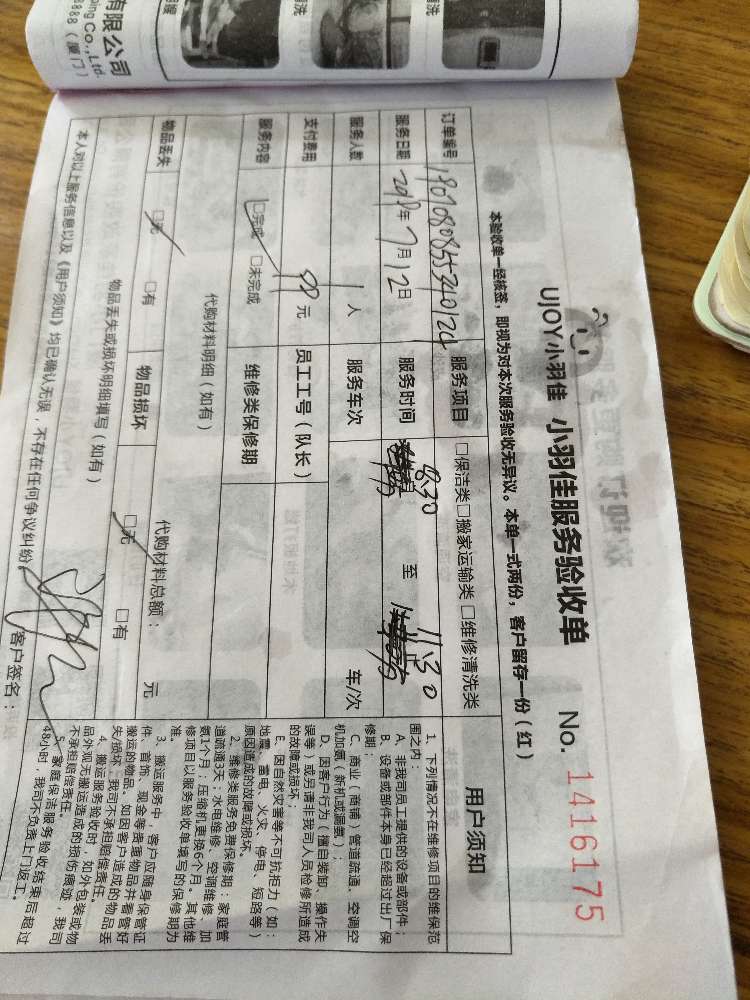 有限公司
ping Co.,Ltd.
8888（厦门）
清洗
清洗
UJOY小羽佳 小羽佳服务验收单 No. 1416175
本验收单一经核签，即视为对本次服务验收无异议。本单一式两份，客户留存一份（红）
订单编号
服务项目 □保洁类 □搬家运输类 □维修清洗类
服务日期 年7月12日 服务时间 8:30 至 11:30
服务人数 1 人 服务车次 车/次
支付费用 元 员工工号（队长）
服务内容 □完成 □未完成 维修类保修期
代购材料明细（如有） 代购材料总额： 元
物品丢失 □无 □有 物品损坏 □无 □有
物品丢失或损坏明细填写（如有）
本人对以上服务信息以及《用户须知》均已确认无误，不存在任何争议纠纷。 客户签名：
用户须知
1、下列情况不在维修项目的维保范
围之内：
A、非我司员工提供的设备或部件；
B、设备或部件本身已经超过出厂保
修期；
C、商业（商铺）管道疏通、空调空
机加氟（新机或漏氟）；
D、因客户行为（擅自装卸、操作失
误等）或另请非我司人员检修所造成
的故障或损坏；
E、因自然灾害等不可抗拒力（如：
地震、雷电、火灾、停电、短路等）
原因造成的故障或损坏。
2、维修类服务免费保修期：家庭管
道疏通3天；水电维修、空调维修、加
氨1个月；压缩机更换6个月。其他维
修项目以服务验收单填写的保修期为
准。
3、搬运服务中，客户应随身保管证
件、首饰、现金等贵重物品并看管好
搬运的物品，如因客户造成的物品丢
失/损坏，我司不承担赔偿责任。
4、搬运服务验收时，如外包装或物
品外观无搬运造成的损伤痕迹，我司
不承担赔偿责任。
5、家庭保洁服务验收结束后超过
48小时，我司不负责上门返工。